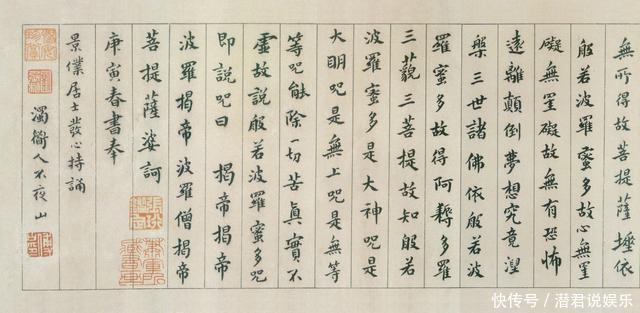 無所得故菩提薩埵依
般若波羅蜜多故心無罣
礙無罣礙故無有恐怖
遠離顛倒夢想究竟涅
槃三世諸佛依般若波
羅蜜多故得阿耨多羅
三藐三菩提故知般若
波羅蜜多是大神咒是
大明咒是無上咒是無等
等咒能除一切苦真實不
虛故說般若波羅蜜多咒
即說咒曰 揭帝揭帝
波羅揭帝 波羅僧揭帝
菩提薩婆訶
庚寅春書奉
景僕居士發心持誦
濁衜人不夜山
快传号/潜君说娱乐